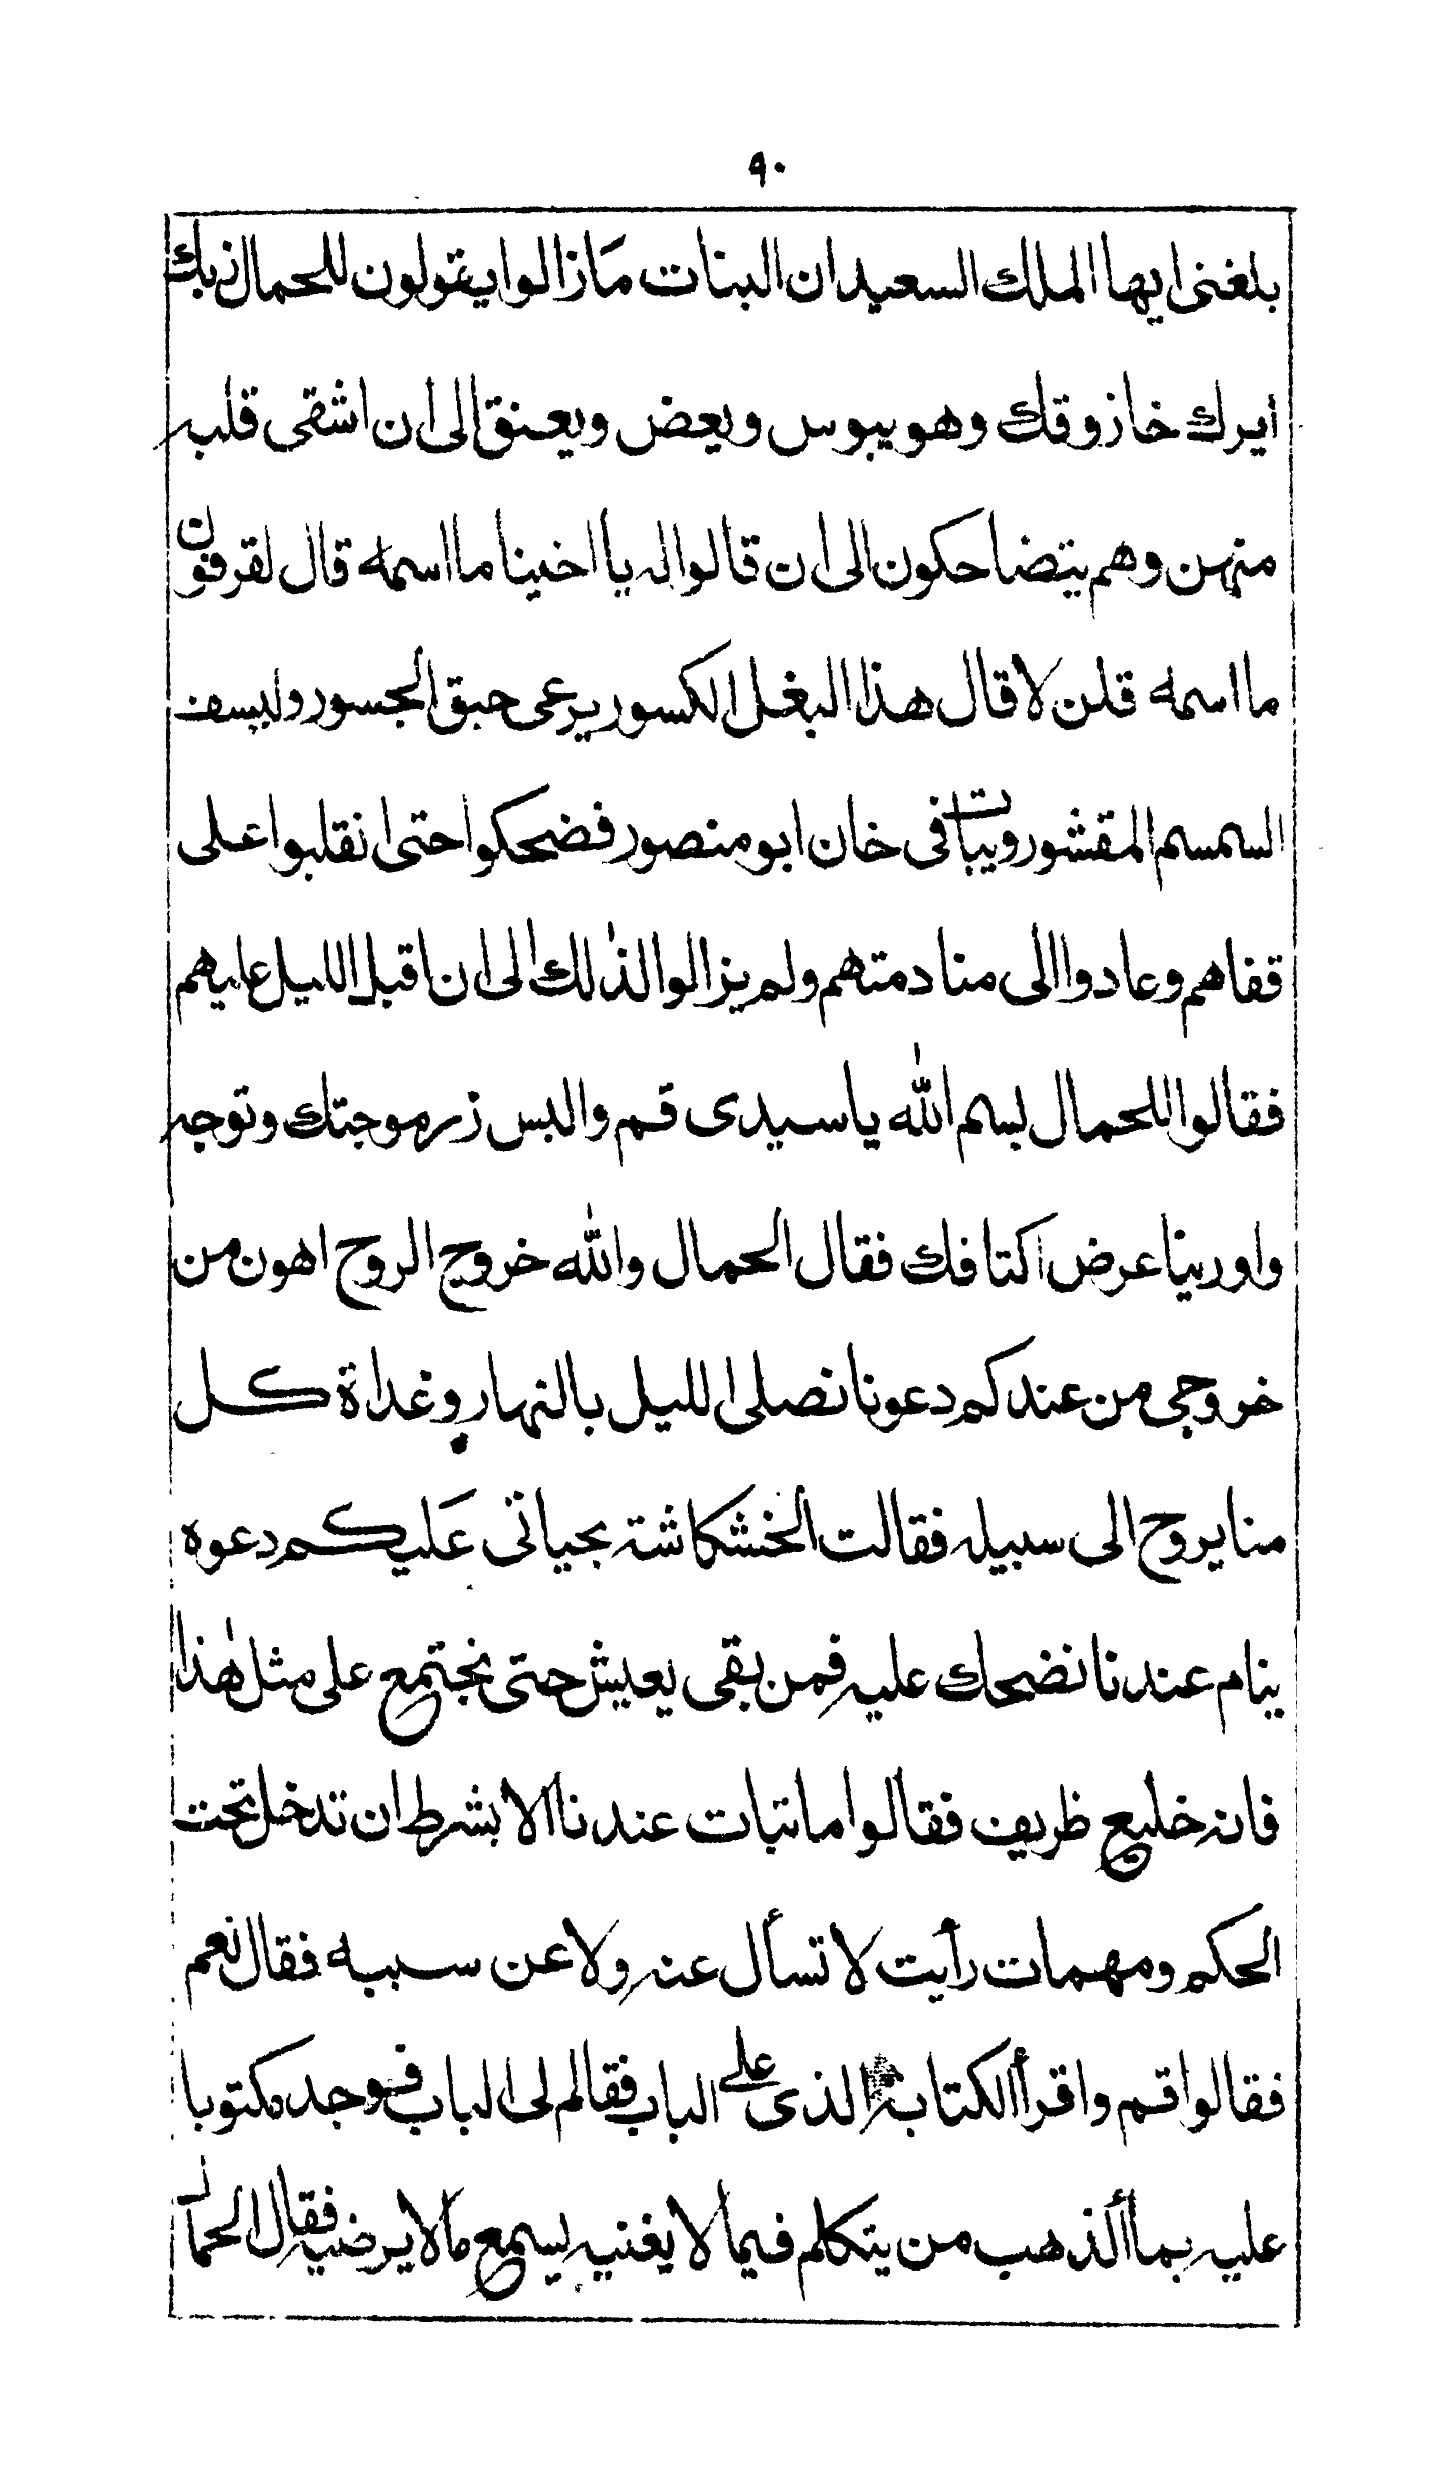 ٩٠
بلغنى ايها الملك السعيد ان البنات مازالوا يقولون للحمال زبك
أيرك خازوقك وهو يبوس ويعض ويعنق الى ان اشقى قلبه
منهن وهم يتضاحكون الى ان قالوا له يا اخينا ما اسمه قال لقرفون
ما اسمه قلن لا قال هذا البغل الكسور يرعى حبق الجسور وليسف
السمسم المقشور ويبات فى خان ابو منصور فضحكوا حتى انقلبوا على
قفاهم وعادوا الى منادمتهم ولم يزالوا لذلك الى ان اقبل الليل عليهم
فقالوا للحمال بسم الله ياسيدى قم والبس زرموجتك وتوجه
واورينا عرض اكتافك فقال الحمال والله خروج الروح اهون من
خروجى من عندكم دعونا نصلى الليل بالنهار وغداة كل
منا يروح الى سبيله فقالت الخشكاشة بحياتى عليكم دعوه
ينام عندنا نضحك عليه فمن بقى يعيش حتى نجتمع على مثل هذا
فانه خليع ظريف فقالوا ما تبات عندنا الا بشرط ان تدخل تحت
الحكم ومهمات رأيت لا تسأل عنه ولا عن سببه فقال نعم
فقالوا قم واقرأ الكتابة الذى على الباب فقالم لى الباب فوجد مكتوبا
عليه بماأ الذهب من يتكلم فيما لا يغنيه يسمع مالا يرضيه فقال الحمال